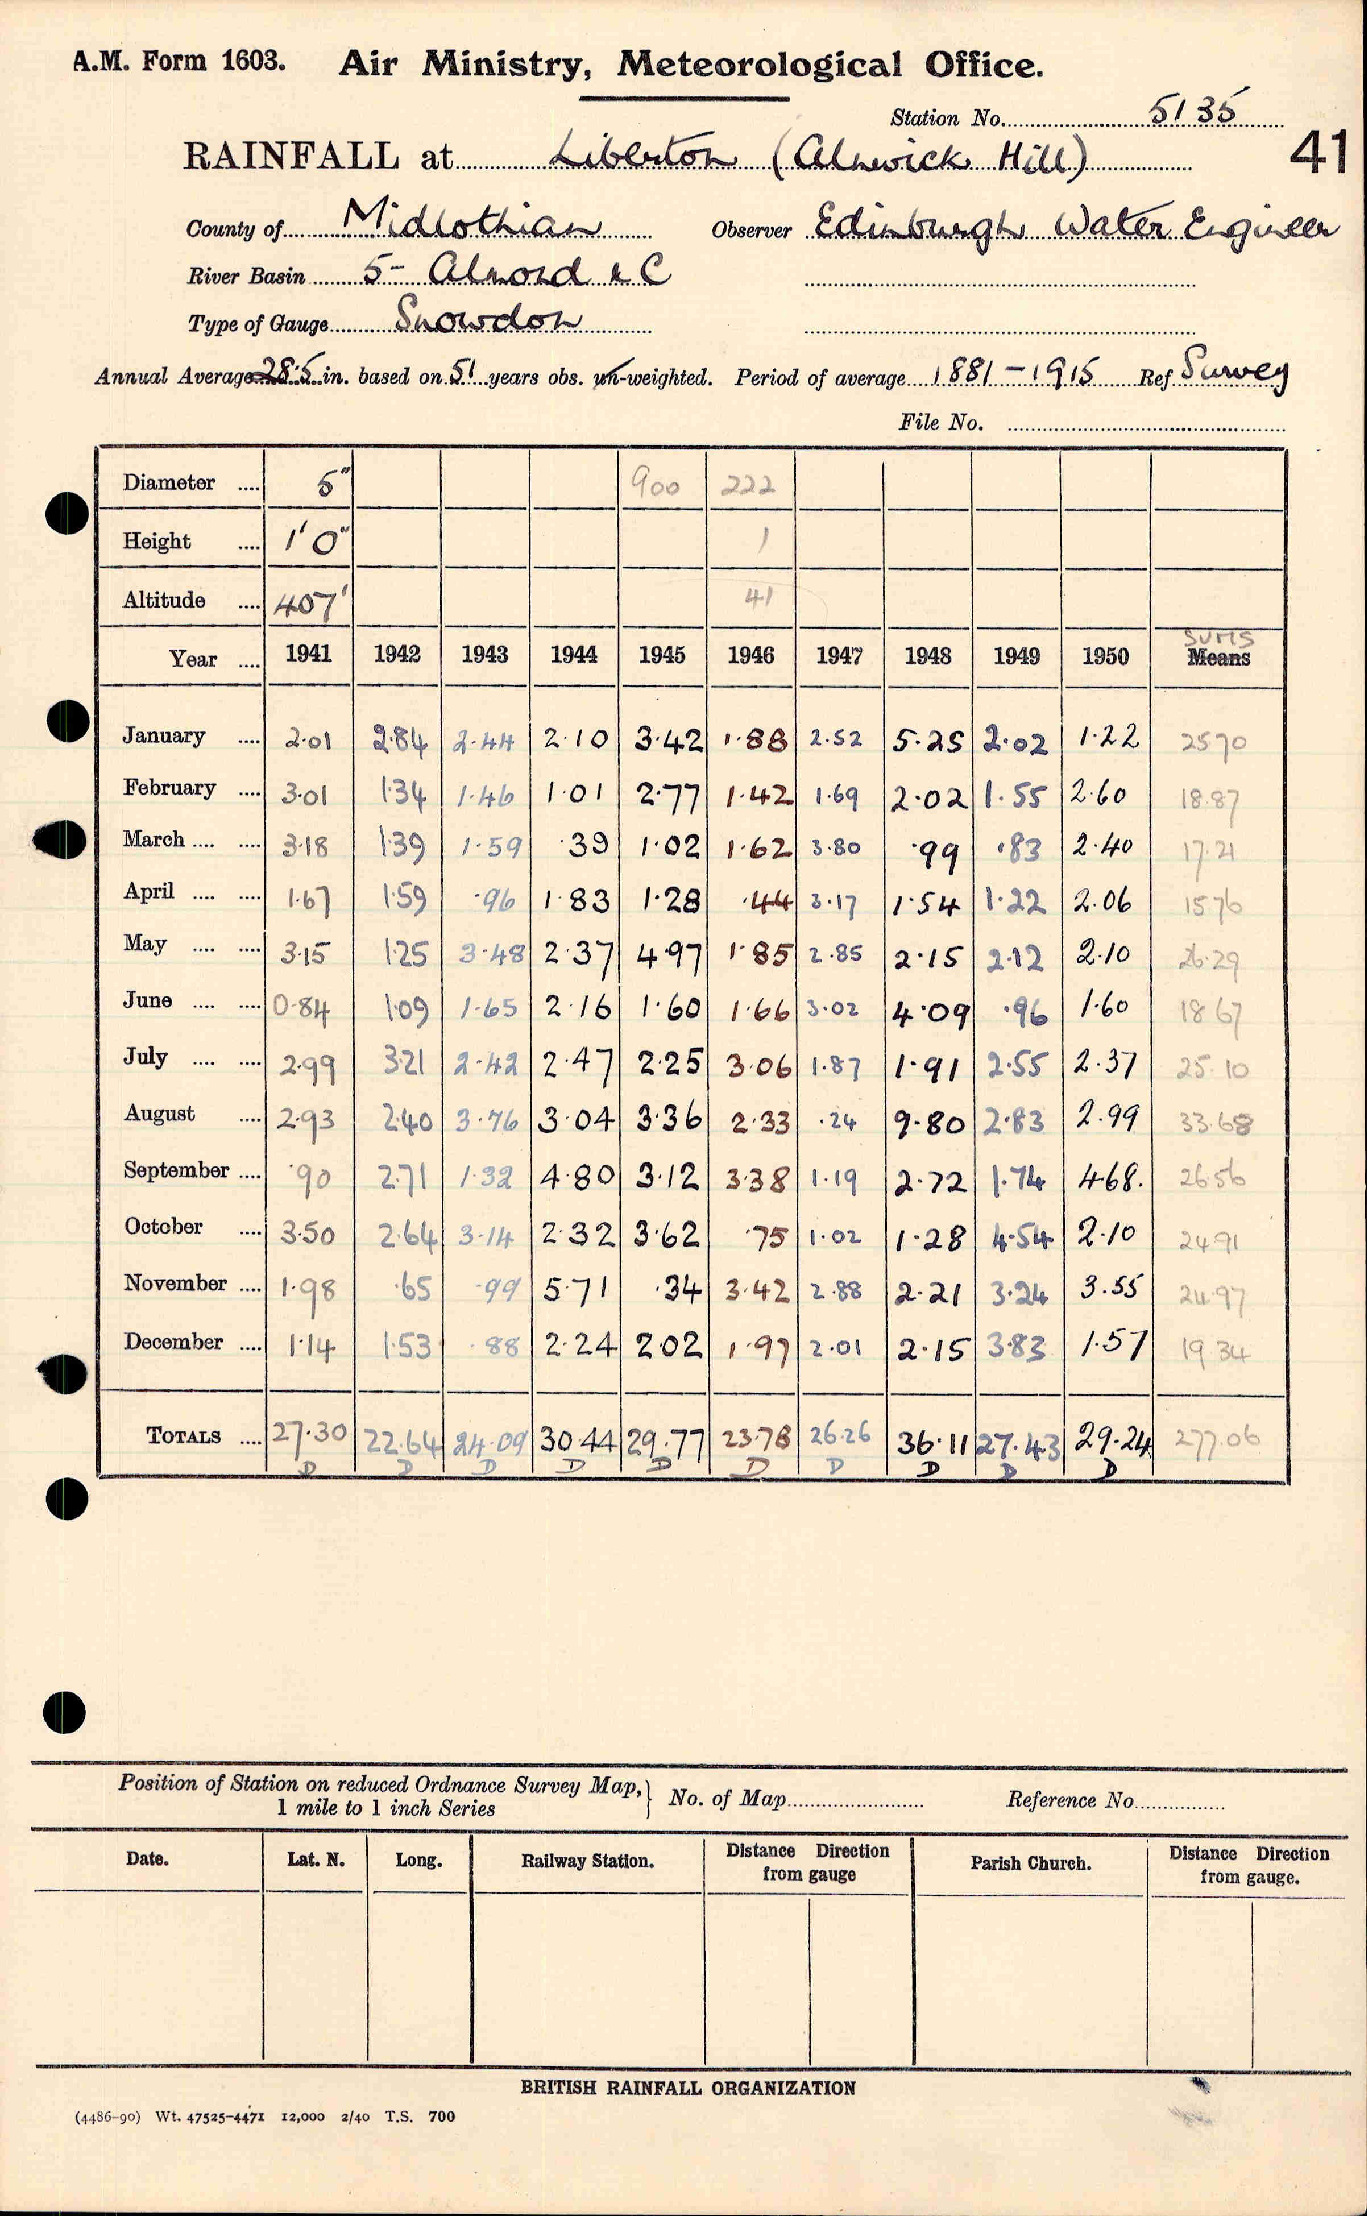 A.M. Form 1603. Air Ministry, Meteorological Office.
Station No. 5135
RAINFALL at Liberton (Alnwick Hill) 41
County of Midlothian Observer Edinburgh Water Engineer
River Basin 5- Almond & C
Type of Gauge Snowdon
Annual Average 28.5 in. based on 51 years obs. un-weighted. Period of average 1881-1915 Ref Survey
File No.
Diameter .... 5" 900 222
Height .... 1'0" 1
Altitude .... 407' 41
SUMS
Year .... 1941 1942 1943 1944 1945 1946 1947 1948 1949 1950 Means
January .... 2.01 2.84 2.44 2.10 3.42 1.88 2.52 5.25 2.02 1.22 25.70
February .... 3.01 1.34 1.46 1.01 2.77 1.42 1.69 2.02 1.55 2.60 18.87
March .... .... 3.18 1.39 1.59 .39 1.02 1.62 3.80 .99 .83 2.40 17.21
April .... .... 1.67 1.59 .96 1.83 1.28 .44 3.17 1.54 1.22 2.06 15.76
May .... .... 3.15 1.25 3.48 2.37 4.97 1.85 2.85 2.15 2.12 2.10 26.29
June .... .... 0.84 1.09 1.65 2.16 1.60 1.66 3.02 4.09 .96 1.60 18.67
July .... .... 2.99 3.21 2.42 2.47 2.25 3.06 1.87 1.91 2.55 2.37 25.10
August .... 2.93 2.40 3.76 3.04 3.36 2.33 .24 9.80 2.83 2.99 33.68
September .... .90 2.71 1.32 4.80 3.12 3.38 1.19 2.72 1.74 4.68. 26.56
October .... 3.50 2.64 3.14 2.32 3.62 .75 1.02 1.28 4.54 2.10 24.91
November .... 1.98 .65 .99 5.71 .34 3.42 2.88 2.21 3.24 3.55 24.97
December .... 1.14 1.53 .88 2.24 2.02 1.97 2.01 2.15 3.83 1.57 19.34
TOTALS .... 27.30 22.64 24.09 30.44 29.77 23.78 26.26 36.11 27.43 29.24 277.06
D D D D D D D D D D
Position of Station on reduced Ordnance Survey Map, No. of Map Reference No.
1 mile to 1 inch Series
Date. Lat. N. Long. Railway Station. Distance Direction Parish Church. Distance Direction
from gauge from gauge.
BRITISH RAINFALL ORGANIZATION
(4486-90) Wt. 47525-4471 12,000 2/40 T.S. 700